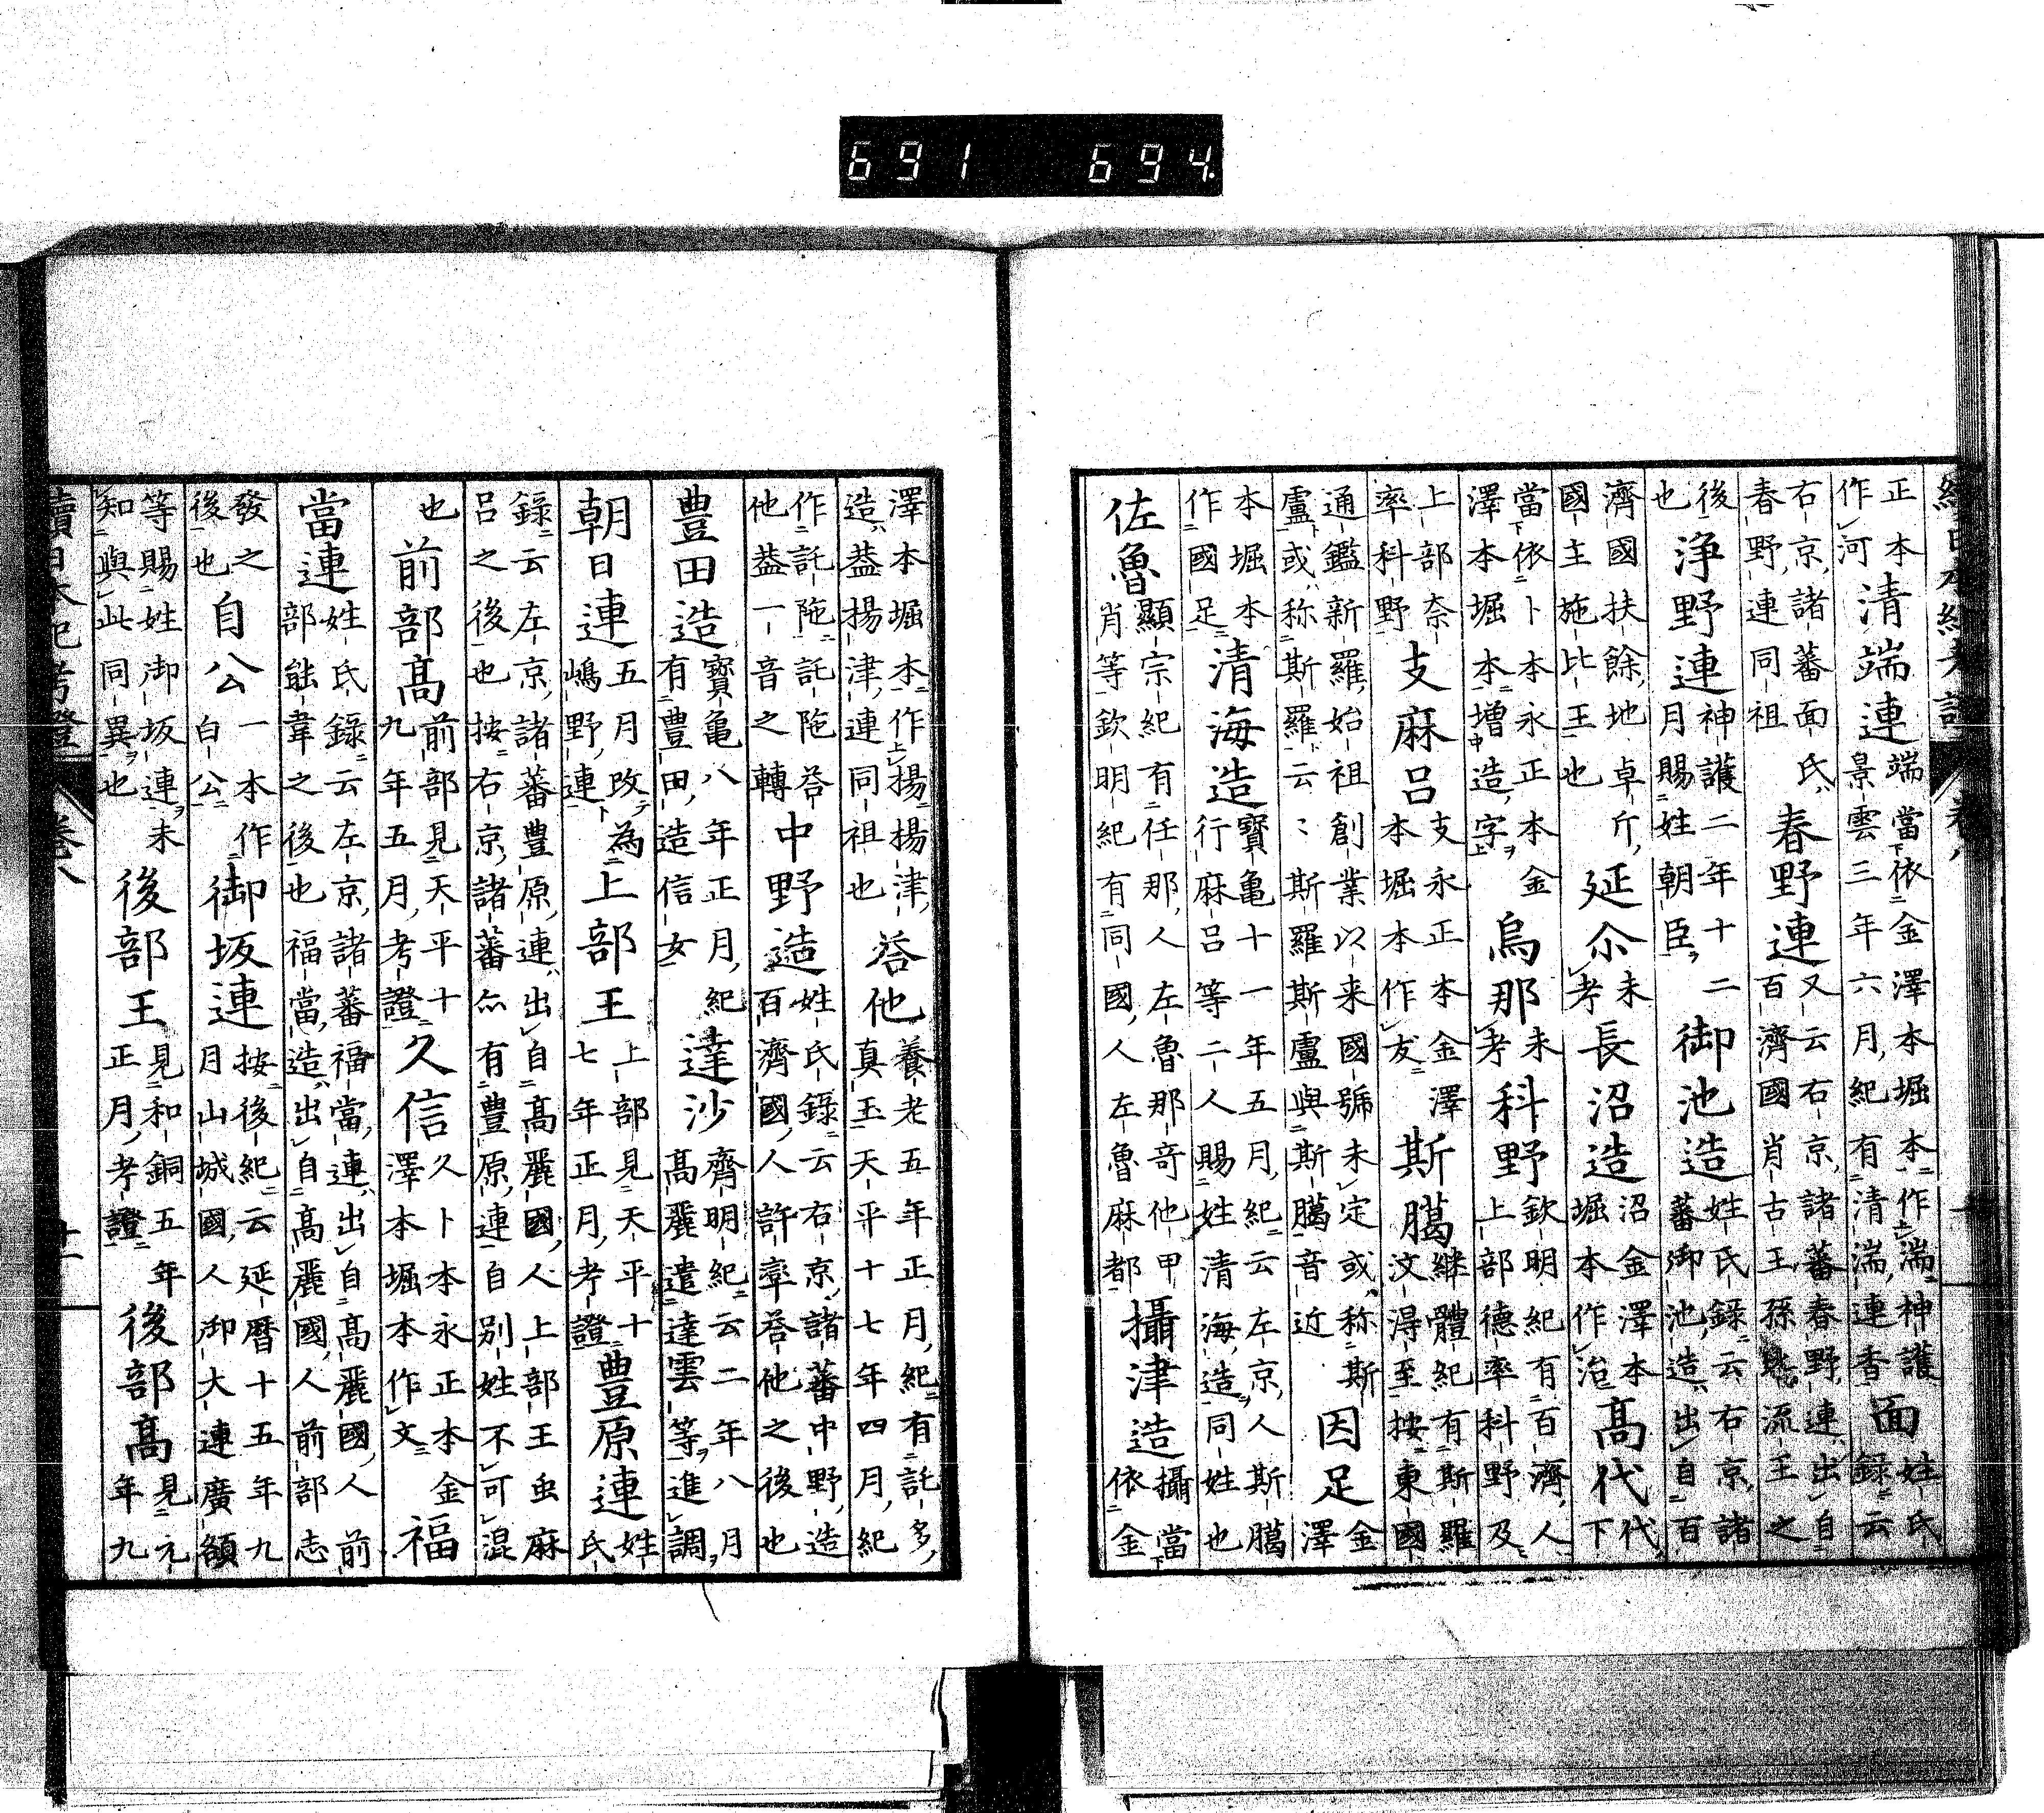 續日本紀考證 卷八
正本作河清湍連端當依金澤本堀本作湍神護景雲三年六月紀有清湍連香面姓氏録云
右京諸蕃面氏春野連同祖春野連又云右京諸蕃春野連出自百濟國肖古王孫流王之
後也淨野連神護二年十二月賜姓朝臣御池造姓氏録云右京諸蕃御池造出自百
濟國扶餘地卓斤國主施比王也延尒未考長沼造沼金澤本堀本作治高代代下
當依卜本永正本金澤本堀本增造字烏那未考科野欽明紀有百濟人上部德率科野及
上部奈率科野支麻呂支永正本金澤本堀本作友斯臈継體紀有斯羅汶得至按東國
通鑑新羅始祖創業以来國號未定或称斯盧或称斯羅云〻斯羅斯盧與斯臈音近因足金澤
本堀本作國足清海造寶亀十一年五月紀云左京人斯臈行麻呂等二人賜姓清海造同姓也
佐魯顯宗紀有任那人左魯那奇他甲肖等欽明紀有同國人左魯麻都攝津造攝當依金
澤本堀本作楊楊津造葢楊津連同祖也荅他養老五年正月紀有託多真玉天平十七年四月紀
作託陁託陁荅他葢一音之轉中野造姓氏録云右京諸蕃中野造百濟國人許率荅他之後也
豊田造寶亀八年正月紀有豊田造信女達沙齊明紀云二年八月高麗遣達雲等進調
朝日連五月改為嶋野連上部王上部見天平十七年正月考證豊原連姓氏
録云左京諸蕃豊原連出自高麗國人上部王虫麻呂之後也按右京諸蕃亦有豊原連自别姓不可混
也前部高前部見天平十九年五月考證久信久卜本永正本金澤本堀本作文福
當連姓氏録云左京諸蕃福當連出自高麗國人前部能韋之後也福當造出自高麗國人前部志
發之後也自公一本作白公御坂連按後紀云延暦十五年九月山城國人御大連廣額
等賜姓御坂連未知與此同異也後部王見和銅五年正月考證後部高見元年九
續日本紀考證 卷八 十一